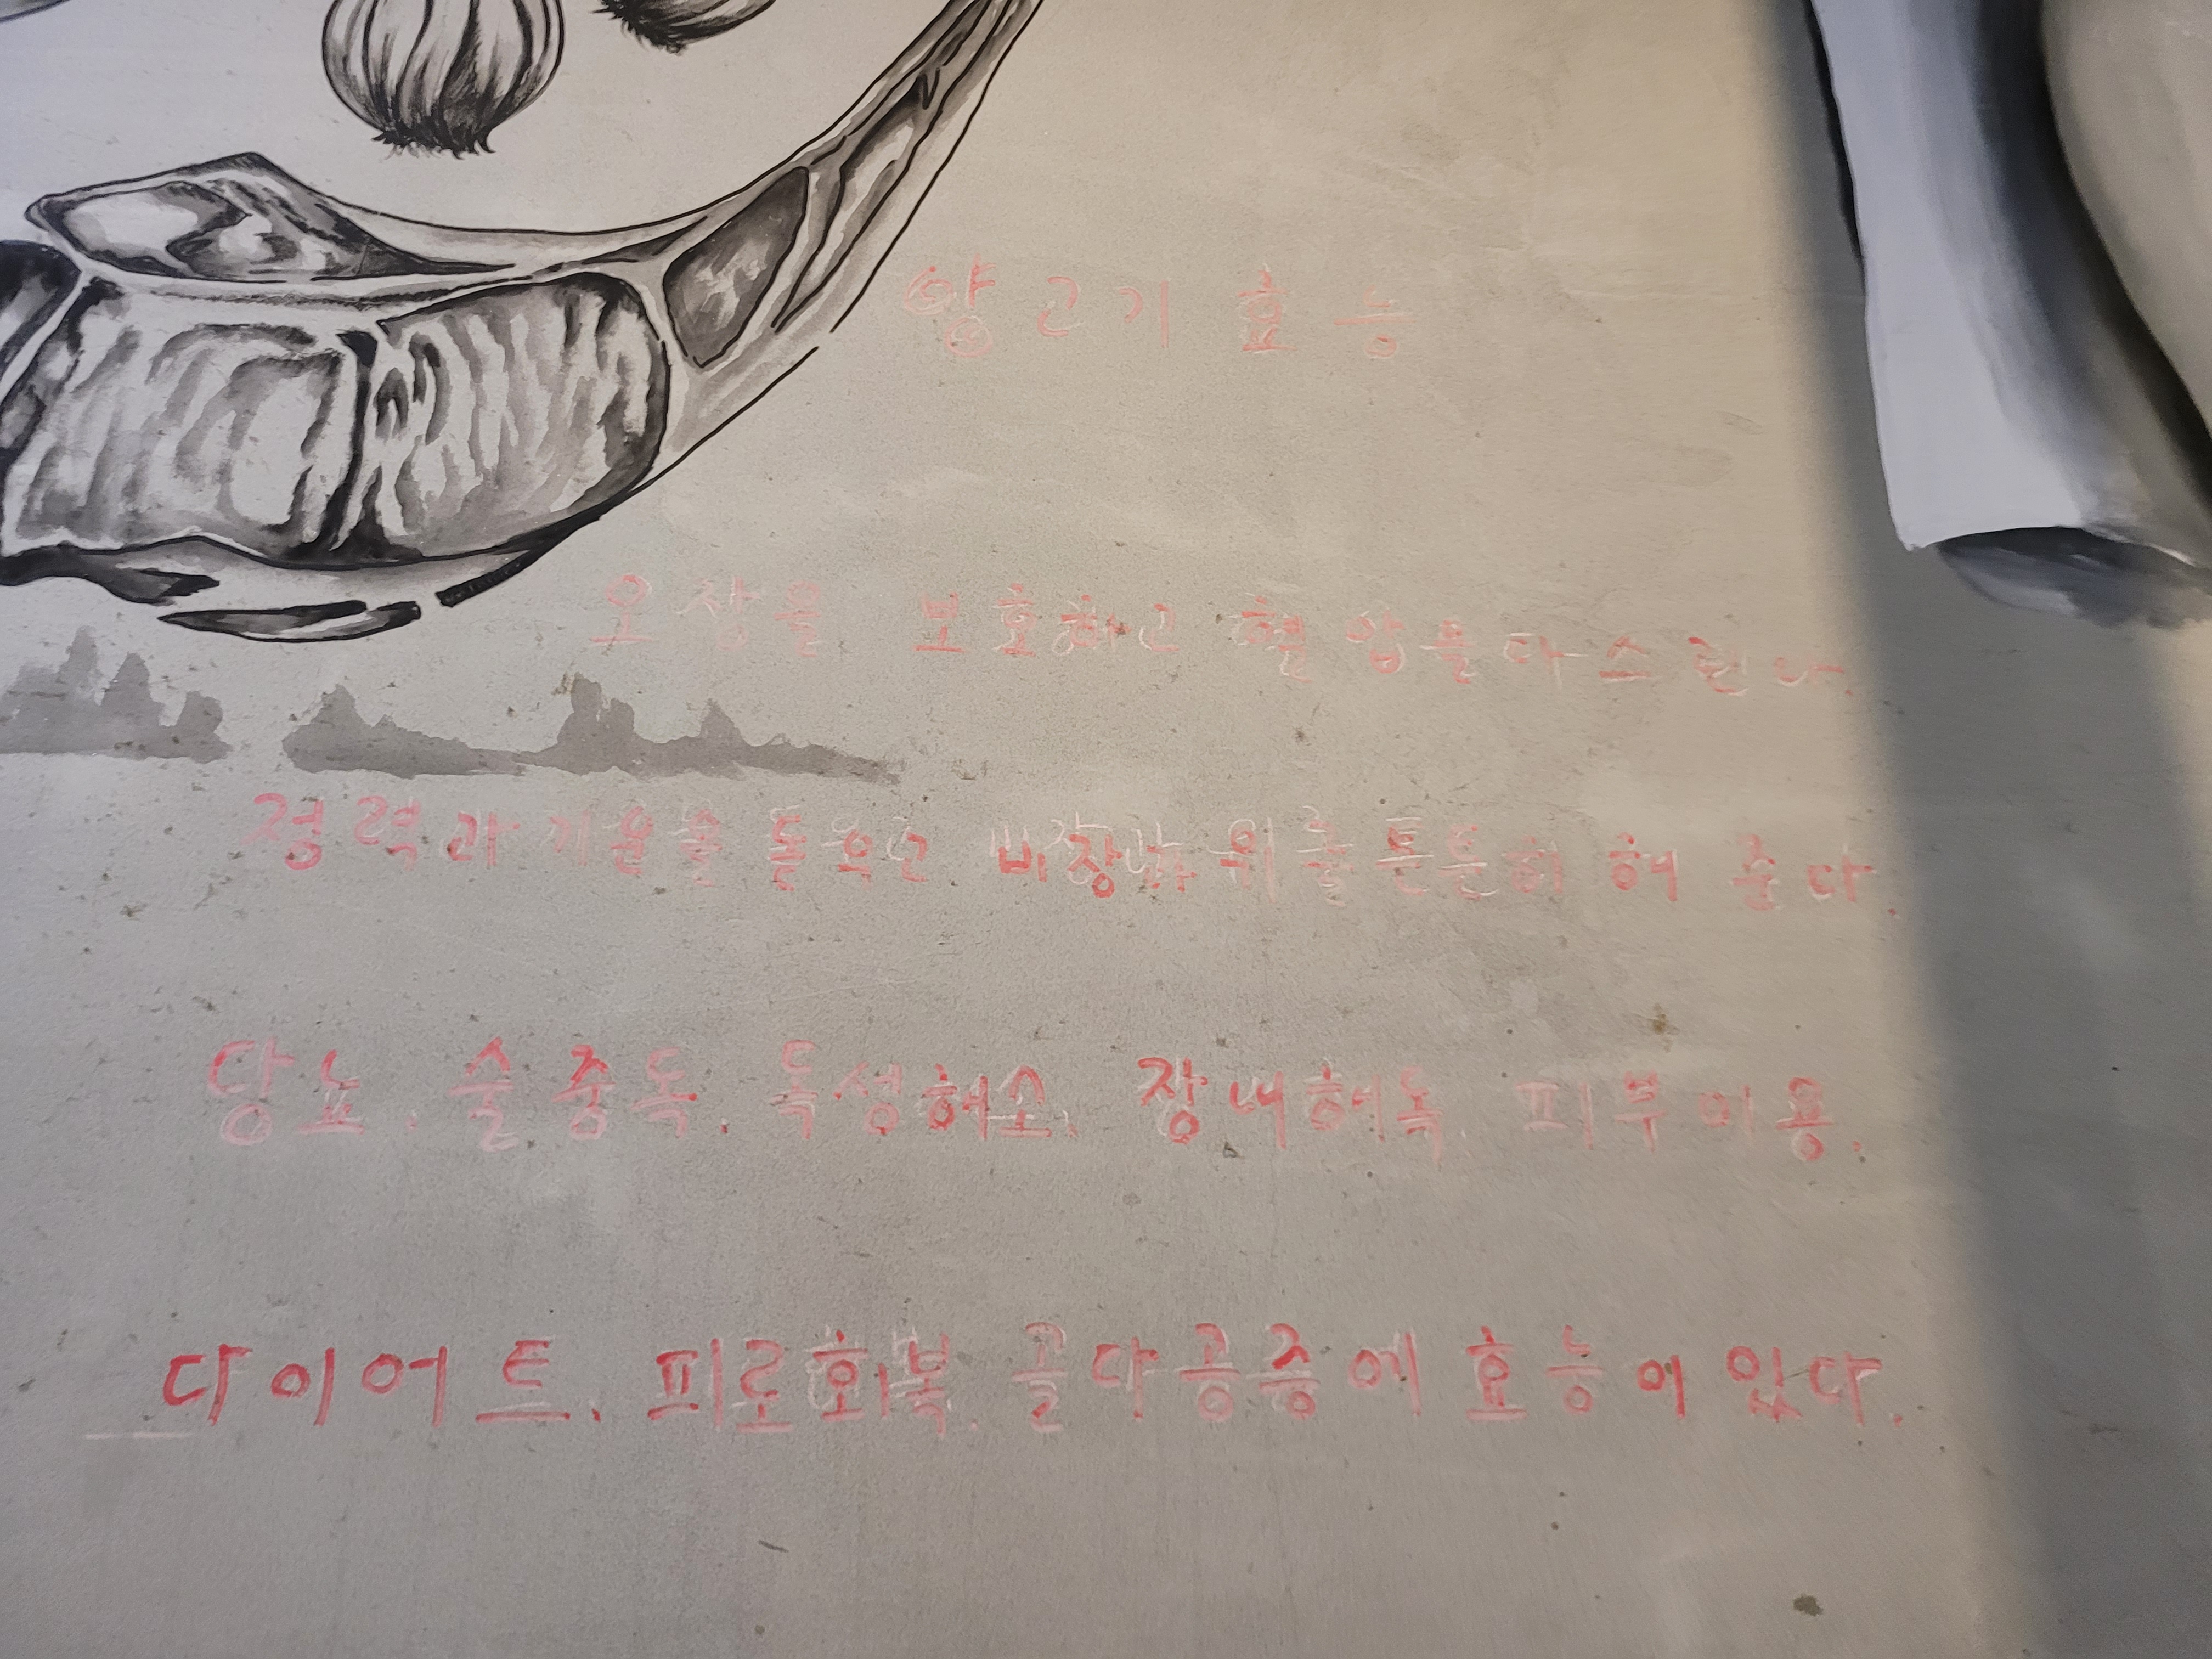 양고기 효능
오장을 보호하고 혈압을 다스린다.
정력과 기운을 돋우고 비장과 위를 튼튼히 해 준다.
당뇨. 술중독. 독성해소. 장내해독. 피부미용.
다이어트. 피로회복. 골다공증에 효능이 있다.